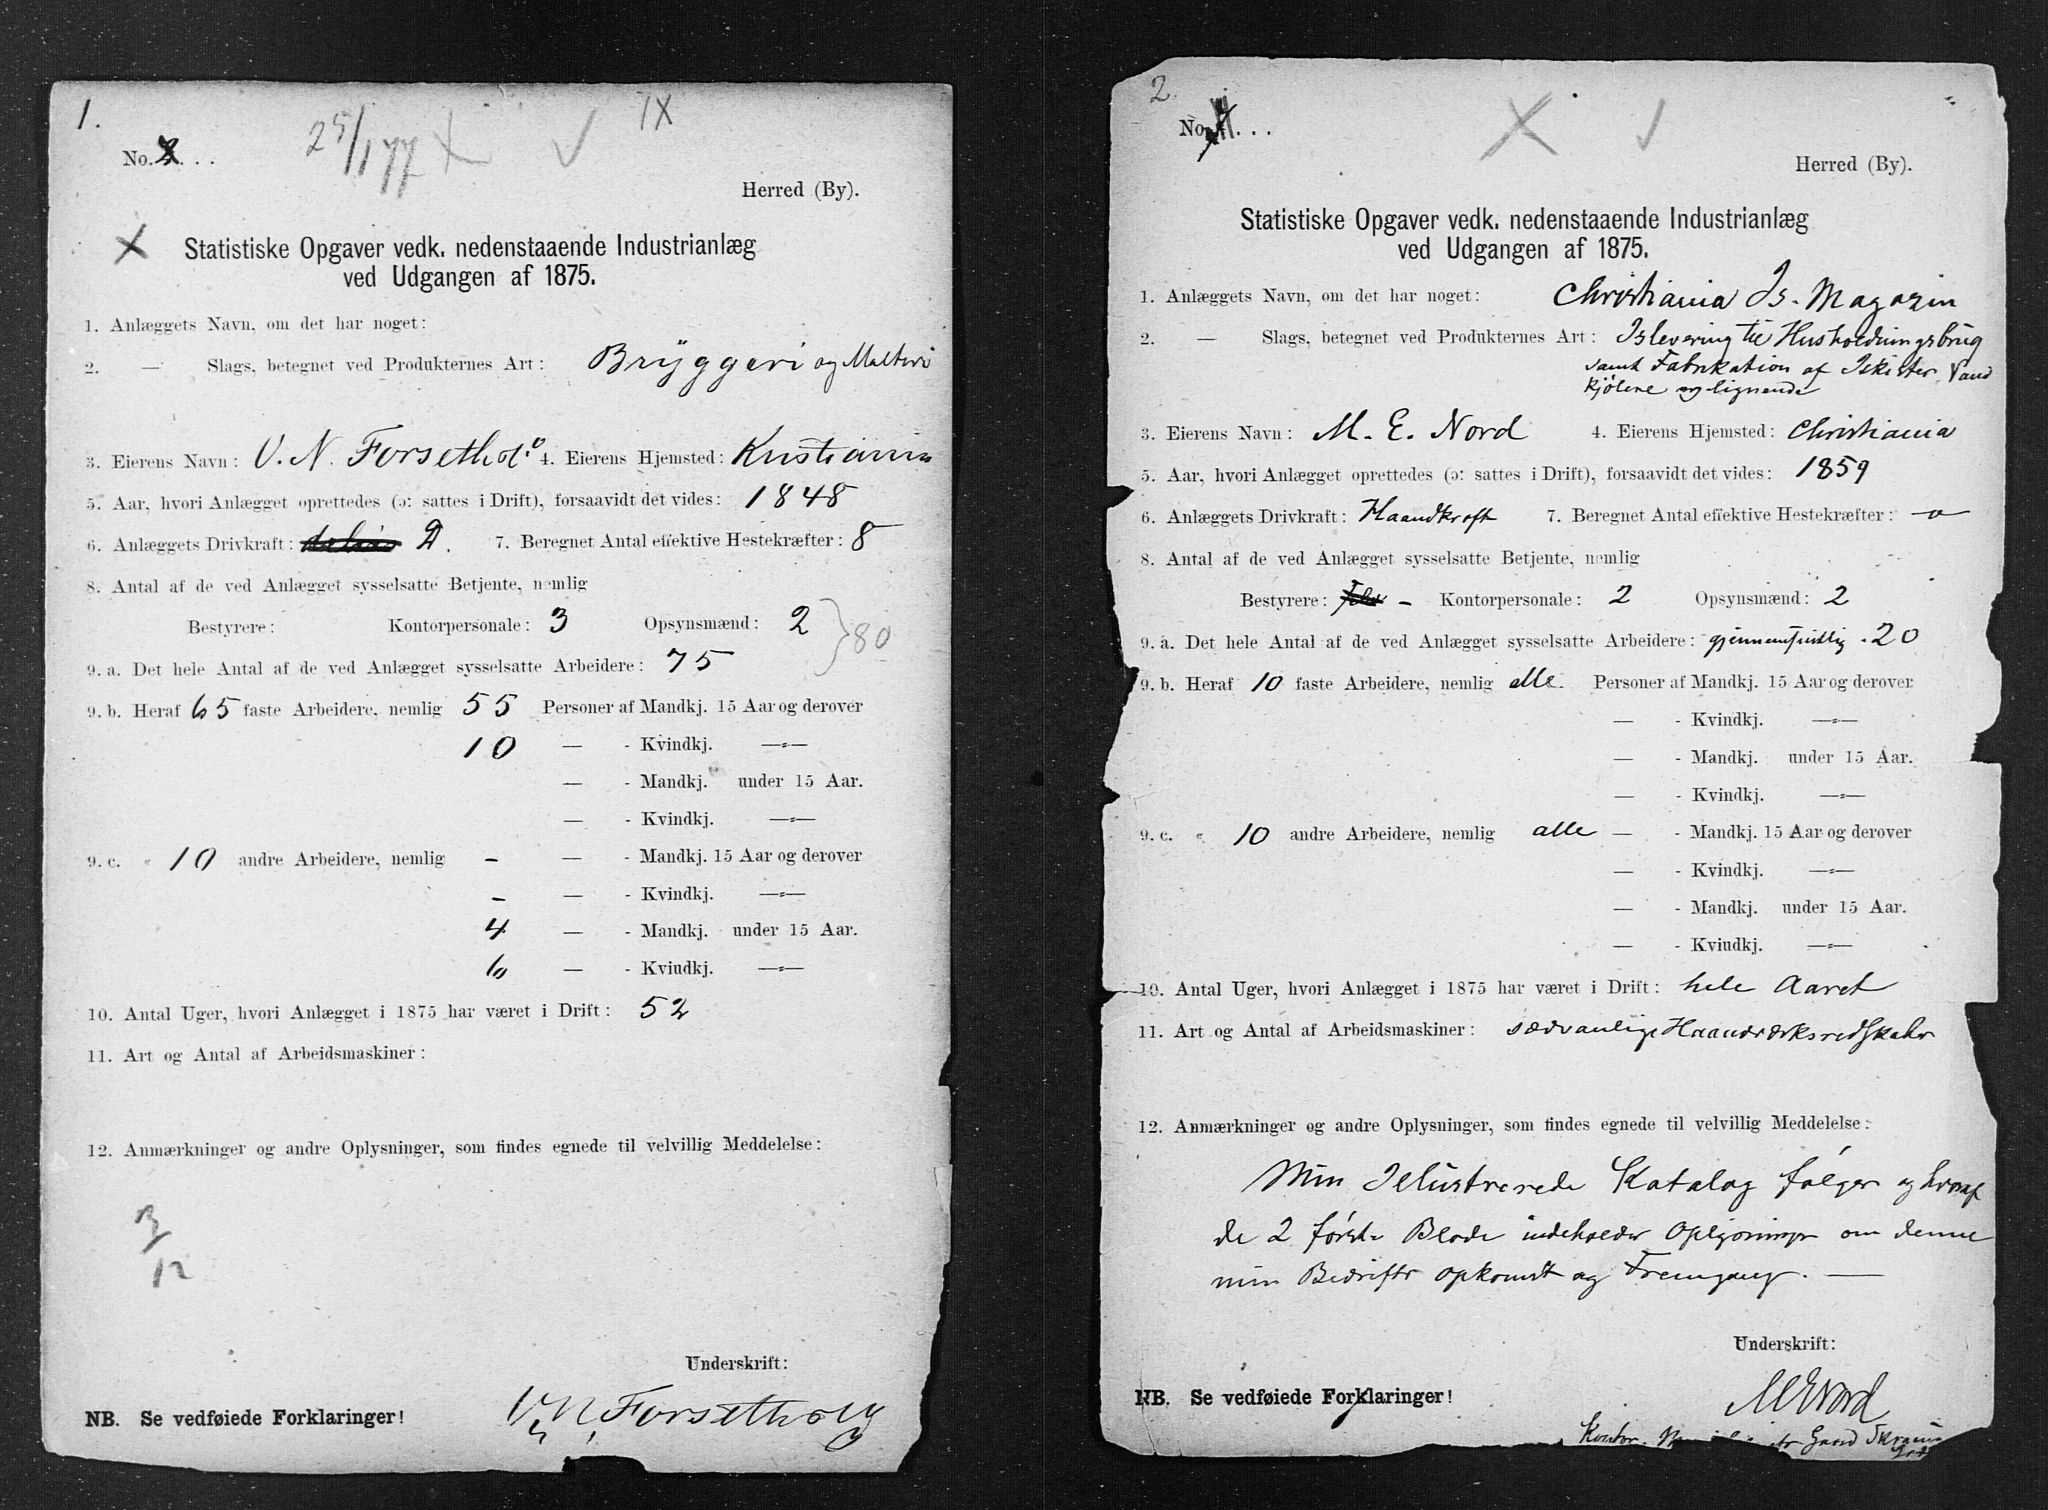 1.
25/1 77
IX
No. . . .
Herred (By).
Statistiske Opgaver vedk. nedenstaaende Industrianlæg
ved Udgangen af 1875.
1. Anlæggets Navn, om det har noget:
2. — Slags, betegnet ved Produkternes Art: Bryggeri og Malteri
3. Eierens Navn: V. N. Forseth 4. Eierens Hjemsted: Kristiania
5. Aar, hvori Anlægget oprettedes (ɔ: sattes i Drift), forsaavidt det vides: 1848
6. Anlæggets Drivkraft: D. 7. Beregnet Antal effektive Hestekræfter: 8
8. Antal af de ved Anlægget sysselsatte Betjente, nemlig
Bestyrere: Kontorpersonale: 3 Opsynsmænd: 2
80
9. a. Det hele Antal af de ved Anlægget sysselsatte Arbeidere: 75
9. b. Heraf 65 faste Arbeidere, nemlig 55 Personer af Mandkj. 15 Aar og derover
10 — - Kvindkj. —„—
— - Mandkj. under 15 Aar.
— - Kvindkj. —„—
9. c. „ 10 andre Arbeidere, nemlig - — - Mandkj. 15 Aar og derover
- — - Kvindkj. —„—
4 — - Mandkj. under 15 Aar.
6 — - Kviudkj. —„—
10. Antal Uger, hvori Anlægget i 1875 har været i Drift: 52
11. Art og Antal af Arbeidsmaskiner:
12. Anmærkninger og andre Oplysninger, som findes egnede til velvillig Meddelelse:
3
12
Underskrift:
NB. Se vedføiede Forklaringer!
V. N. Forseth
2.
No. . . .
Herred (By).
Statistiske Opgaver vedk. nedenstaaende Industrianlæg
ved Udgangen af 1875.
1. Anlæggets Navn, om det har noget: Christiania Is-Magazin
2. — Slags, betegnet ved Produkternes Art: Islevering til Husholdningsbrug
samt Fabrikation af Iskister, Vand
kjølene og lignende
3. Eierens Navn: M. E. Nord 4. Eierens Hjemsted: Christiania
5. Aar, hvori Anlægget oprettedes (ɔ: sattes i Drift), forsaavidt det vides: 1859
6. Anlæggets Drivkraft: Haandkraft 7. Beregnet Antal effektive Hestekræfter: — o
8. Antal af de ved Anlægget sysselsatte Betjente, nemlig
Bestyrere: - Kontorpersonale: 2 Opsynsmænd: 2
9. a. Det hele Antal af de ved Anlægget sysselsatte Arbeidere: gjennemsnitlig - 20
9. b. Heraf 10 faste Arbeidere, nemlig alle. Personer af Mandkj. 15 Aar og derover
— - Kvindkj. —„—
— - Mandkj. under 15 Aar.
— - Kvindkj. —„—
9. c. „ 10 andre Arbeidere, nemlig alle — - Mandkj. 15 Aar og derover
— - Kvindkj. —„—
— - Mandkj. under 15 Aar.
— - Kviudkj. —„—
10. Antal Uger, hvori Anlægget i 1875 har været i Drift: hele Aaret
11. Art og Antal af Arbeidsmaskiner: sædvanlige Haandværksredskaber
12. Anmærkninger og andre Oplysninger, som findes egnede til velvillig Meddelelse:
Min Illustrerede Katalog følger og hvoraf
de 2 første Blade indeholder Oplysninger om denne
min Bedrifts opkomst og Fremgang. —
Underskrift:
NB. Se vedføiede Forklaringer!
M E Nord
Kontor. Gaard